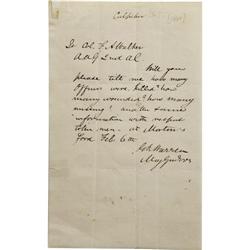 Culpeper
[1864]
To Col. F. A. Walker
A.A.G. 2nd A.C.
Will you
please tell me how many
Officers were killed? how
many wounded? how many
missing? and the same
information with respect
to the men - at Morton's
Ford Feb 6th
G K Warren
Maj Gen Vols